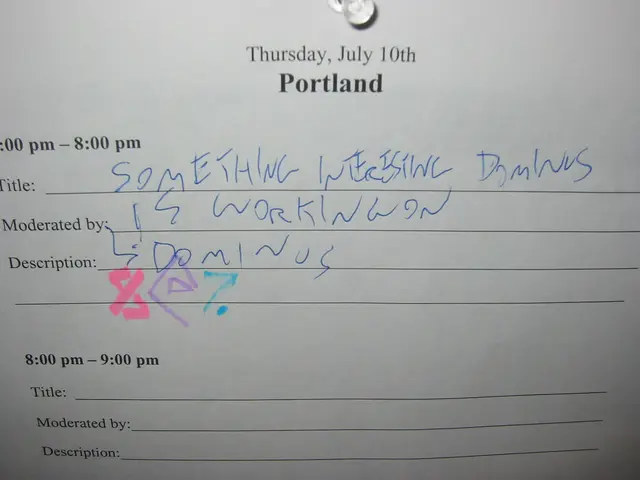 Thursday, July 10th
Portland
:00 pm – 8:00 pm
Title: SOMETHING INTERESTING DOMINUS
Moderated by: IS WORKING ON
Description: DOMINUS
& @ ?
8:00 pm – 9:00 pm
Title:
Moderated by:
Description: